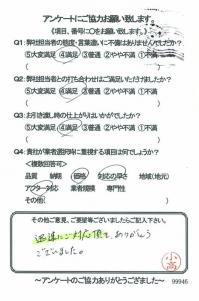 アンケートにご協力お願い致します。
《項目、番号に〇をお願い致します。》
Q1: 弊社担当者の態度・言葉遣いに不備はありませんでしたか?
⑤大変満足 ④満足 ③普通 ②やや不満 ①不満
Q2: 弊社担当者との打ち合わせはご満足いただけましたか?
⑤大変満足 ④満足 ③普通 ②やや不満 ①不満
Q3: お引き渡し時の仕上がりはいかがでしたか?
⑤大変満足 ④満足 ③普通 ②やや不満 ①不満
Q4: 貴社が業者選択時に重視する項目は何でしょうか?
<複数回答可>
品質 納期 価格 対応の早さ 地域(地元)
アフター対応 業者規模 専門性
その他( )
その他ご意見、ご要望等ございましたらご記入下さい。
迅速にご対応頂き、ありがとう
ございました。
小高
~アンケートのご協力ありがとうございました~
99946